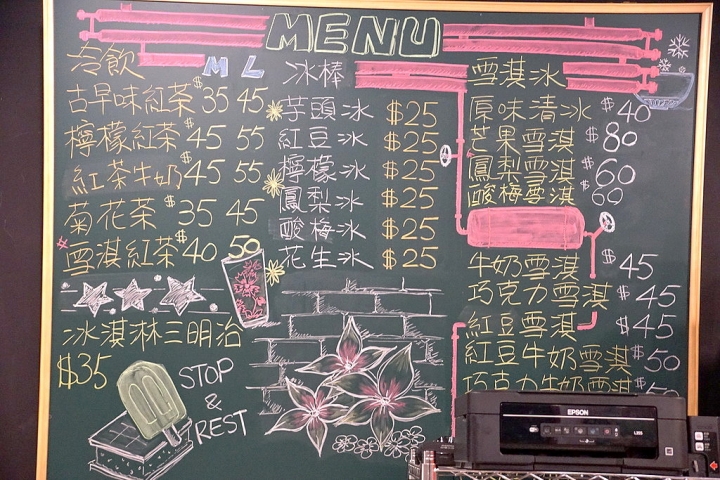 MENU
冷飲 M L
古早味紅茶 $35 45
檸檬紅茶 $45 55
紅茶牛奶 $45 55
菊花茶 $35 45
雪淇紅茶 $40 50
冰淇淋三明治
$35
STOP
&
REST
冰棒
芋頭冰 $25
紅豆冰 $25
檸檬冰 $25
鳳梨冰 $25
酸梅冰 $25
花生冰 $25
雪淇冰
原味清冰 $40
芒果雪淇 $80
鳳梨雪淇 $60
酸梅雪淇 $60
牛奶雪淇 $45
巧克力雪淇 $45
紅豆雪淇 $45
紅豆牛奶雪淇 $50
巧克力牛奶雪淇 $50
EPSON